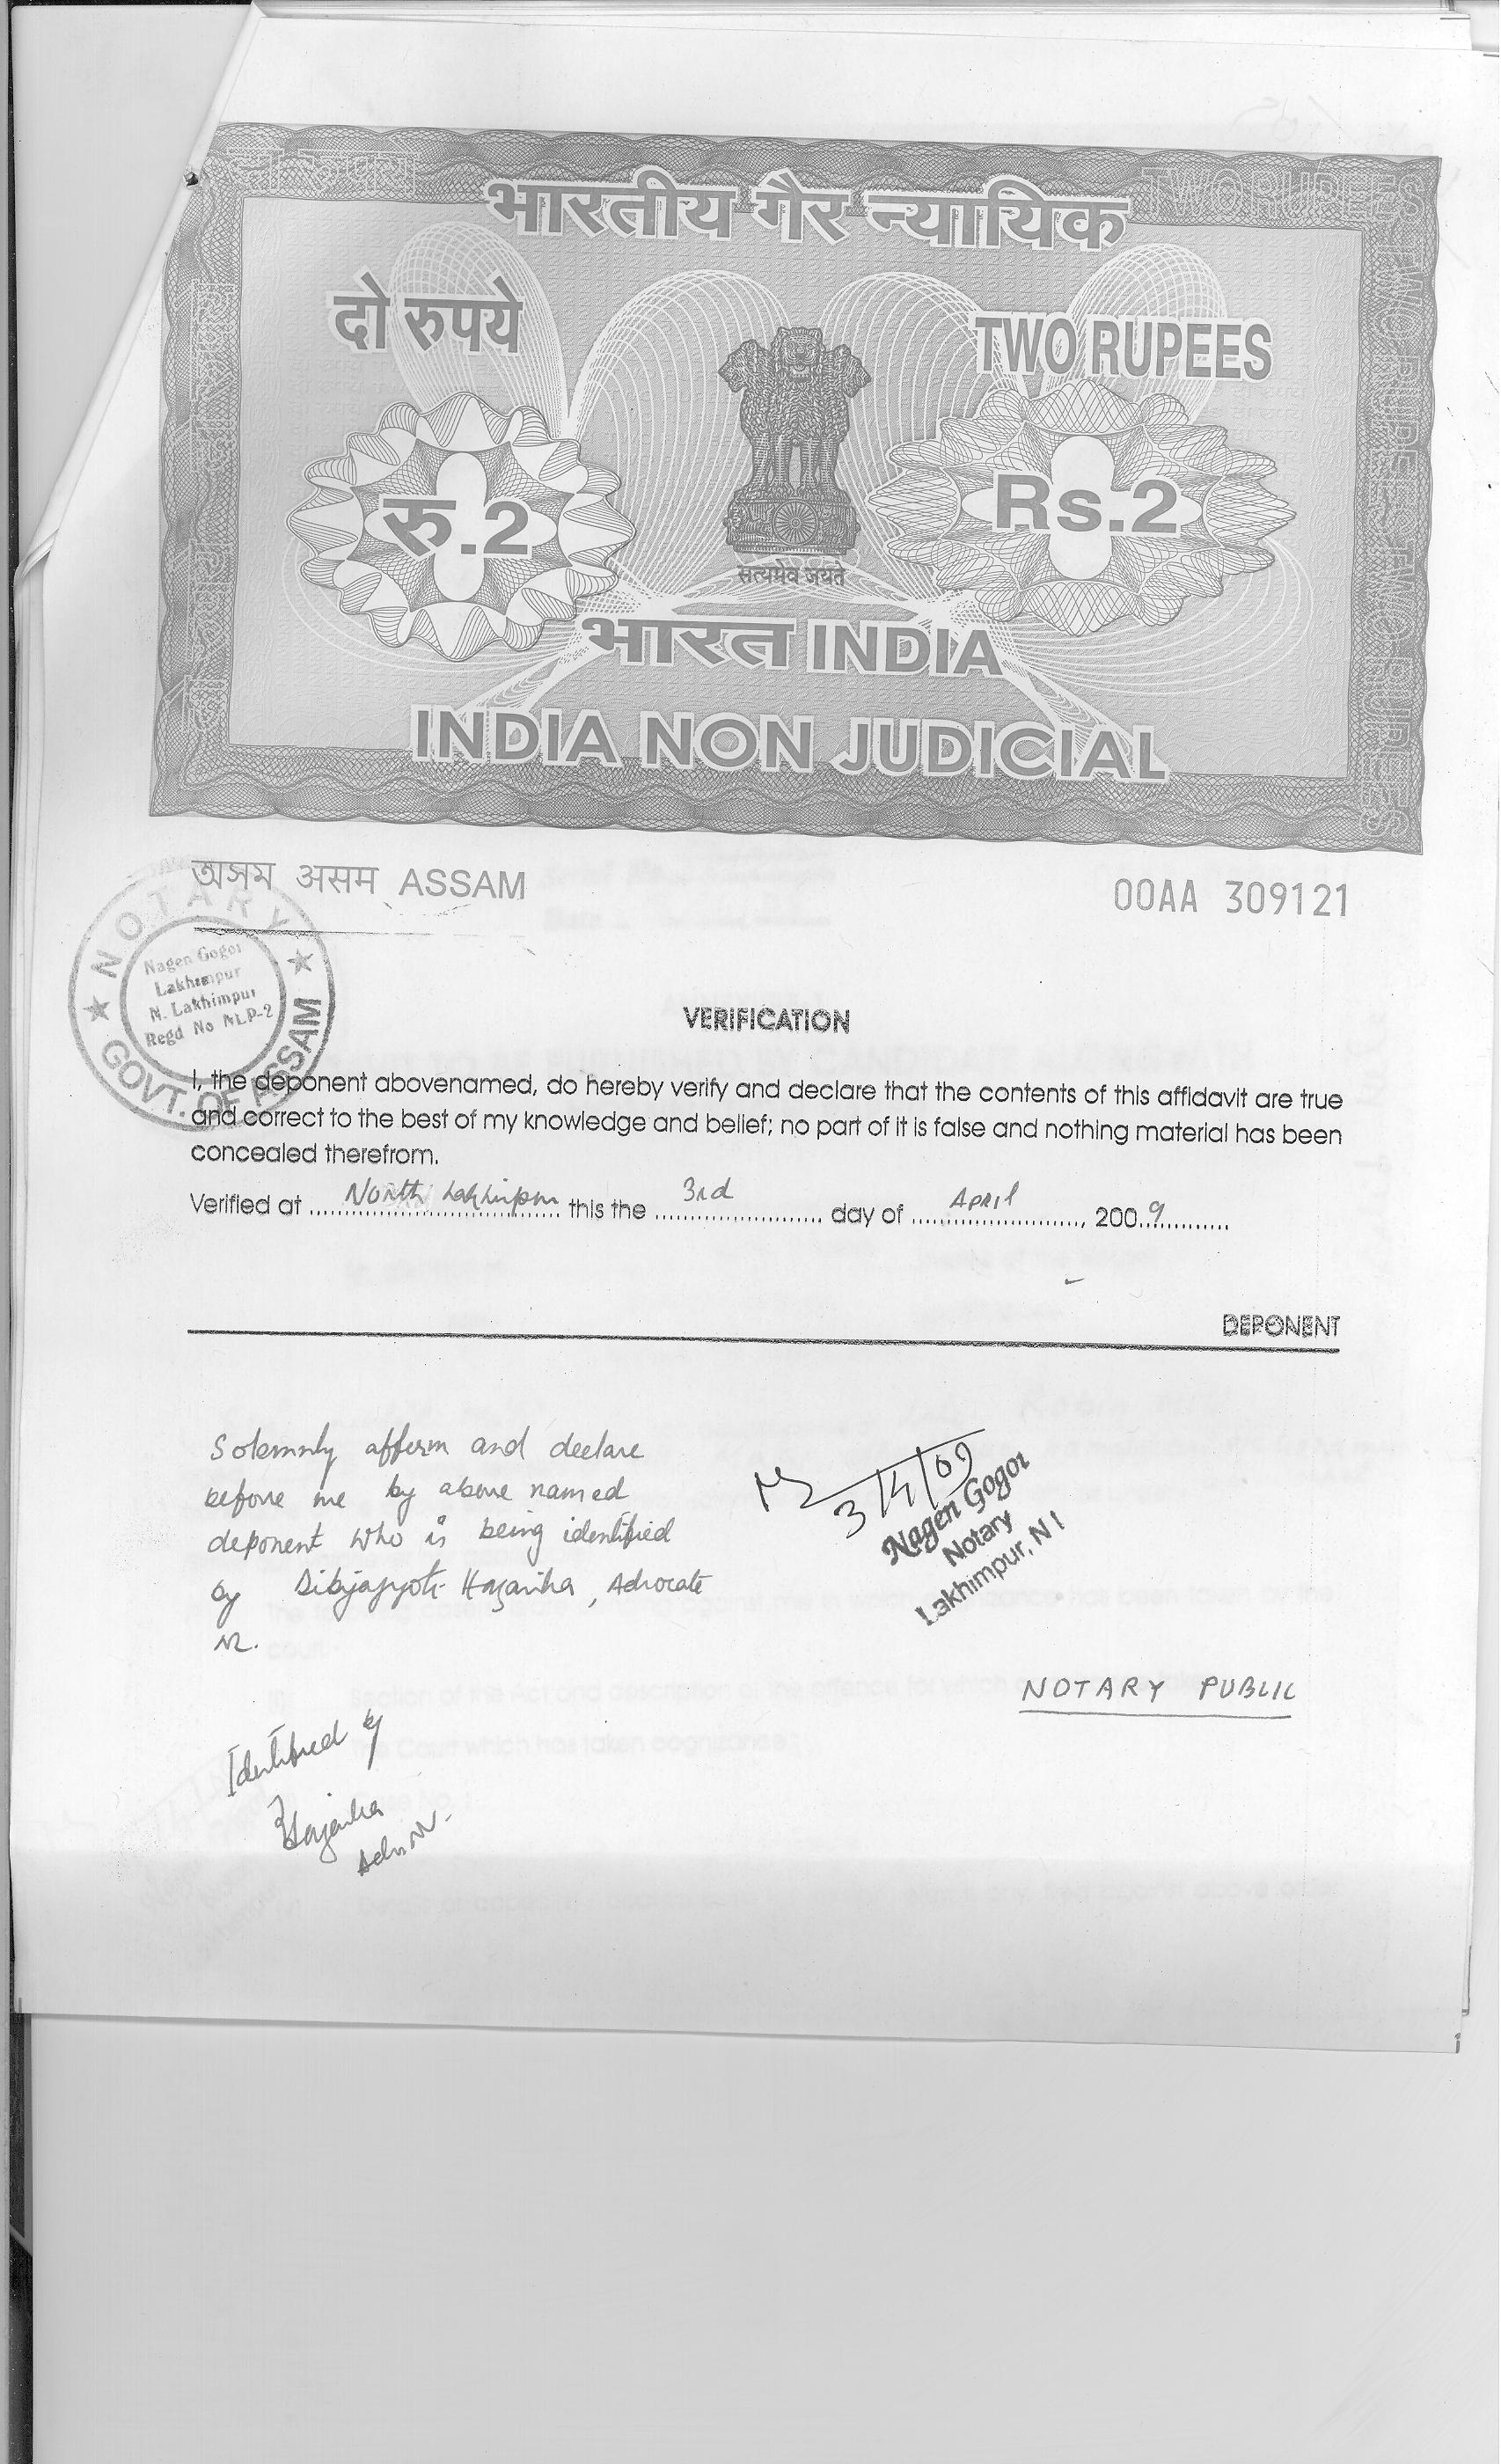 दो रुपये TWO RUPEES
भारतीय गैर न्यायिक
दो रुपये
TWO RUPEES
रु.2
Rs.2
सत्यमेव जयते
भारत INDIA
INDIA NON JUDICIAL
অসম असम ASSAM
00AA 309121
NOTARY
Nagen Gogoi
Lakhimpur
N. Lakhimpur
Regd No NLP-2
GOVT. OF ASSAM
VERIFICATION
I, the deponent abovenamed, do hereby verify and declare that the contents of this affidavit are true
and correct to the best of my knowledge and belief; no part of it is false and nothing material has been
concealed therefrom.
Verified at North Lakhimpur this the 3rd day of April, 2009
DEPONENT
Solemnly affirm and declare
before me by above named
deponent who is being identified
by Dibyajyoti Hazarika, Advocate
3/4/09
Nagen Gogoi
Notary
Lakhimpur, N
NOTARY PUBLIC
Identified by
Hazarika